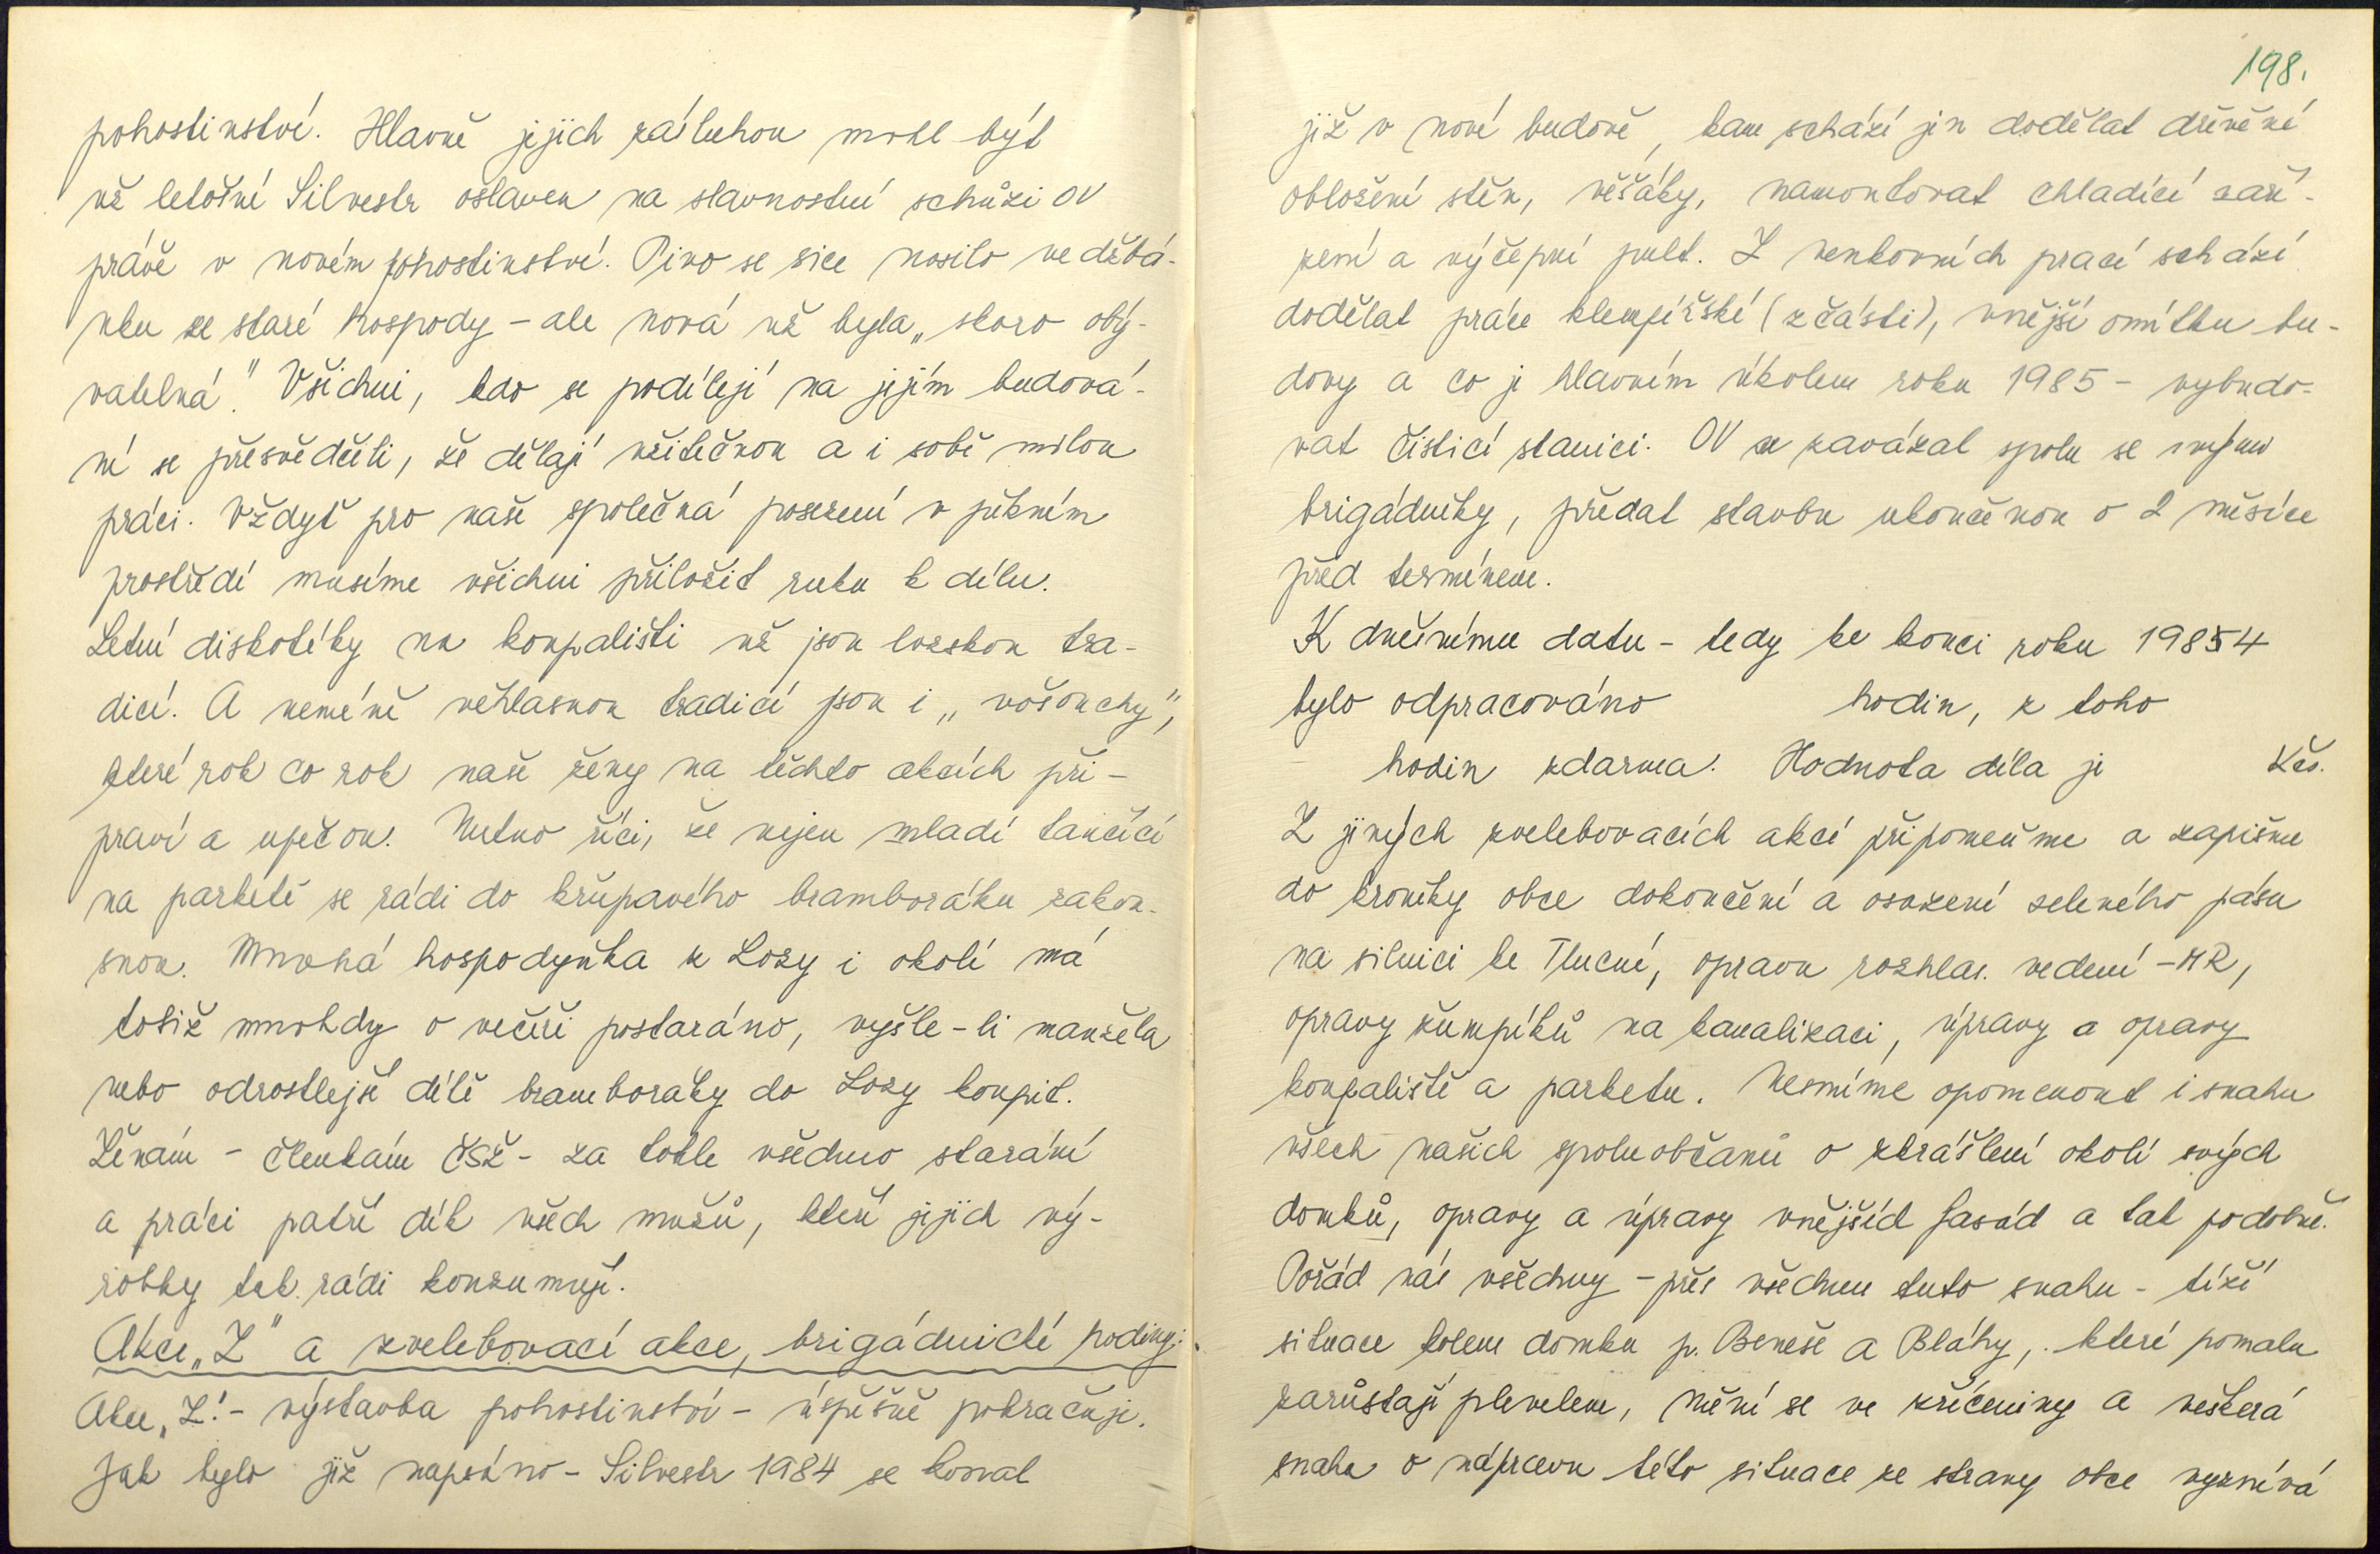 pohostinství. Hlavně jejich zásluhou mohl být
už letošní Silvestr oslaven na slavnostní schůzi OV
právě v novém pohostinství. Pivo se sice nosilo ve džbá-
nku ze staré hospody - ale nová už byla „skoro obý-
vatelná". Všichni, kdo se podílejí na jejím budová-
ní se přesvědčili, že dělají užitečnou a i sobě milou
práci. Vždyť pro naše společná posezení v pěkném
prostředí musíme všichni přiložit ruku k dílu.
Letní diskotéky na koupališti už jsou lozskou tra-
dicí. A neméně věhlasnou tradicí jsou i „vošouchy",
které rok co rok naše ženy na těchto akcích při-
praví a upečou. Nutno říci, že nejen mladí tančící
na parketě se rádi do křupavého bramboráku zakou-
snou. Mnohá hospodyňka z Lozy i okolí má
totiž mnohdy o večeři postaráno, vyšle-li manžela
nebo odrostlejší dítě bramboráky do Lozy koupit.
Ženám - členkám ČSŽ - za tohle všechno starání
a práci patří dík všech mužů, kteří jejich vý-
robky tak rádi konzumují.
Akce „Z" a zvelebovací akce, brigádnické hodiny:
Akce „Z" - výstavba pohostinství - úspěšně pokračuje.
Jak bylo již napsáno - Silvestr 1984 se konal
198.
již v nové budově, kam schází jen dodělat dřevěné
obložení stěn, věšáky, namontovat chladící zaří-
zení a výčepní pult. Z venkovních prací schází
dodělat práce klempířské (zčásti), vnější omítku bu-
dovy a co je hlavním úkolem roku 1985 - vybudo-
vat čistící stanici. OV se zavázal spolu se svými
brigádníky, předat stavbu ukončenou o 2 měsíce
před termínem.
K dnešnímu datu - tedy ke konci roku 19854
bylo odpracováno hodin, z toho
hodin zdarma. Hodnota díla je Kčs.
Z jiných zvelebovacích akcí připomeňme a zapišme
do kroniky obce dokončení a osazení zeleného pásu
na silnici ke Tlucné, opravu rozhlas. vedení - MR,
opravy žumpíků na kanalizaci, úpravy a opravy
koupaliště a parketu. Nesmíme opomenout i snahu
všech našich spoluobčanů o zkrášlení okolí svých
domků, opravy a úpravy vnějších fasád a tak podobně.
Pořád nás všechny - přes všechnu tuto snahu - tíží
situace kolem domku p. Beneše a Bláhy, které pomalu
zarůstají plevelem, mění se ve zříceniny a veškerá
snaha o nápravu této situace ze strany obce vyznívá